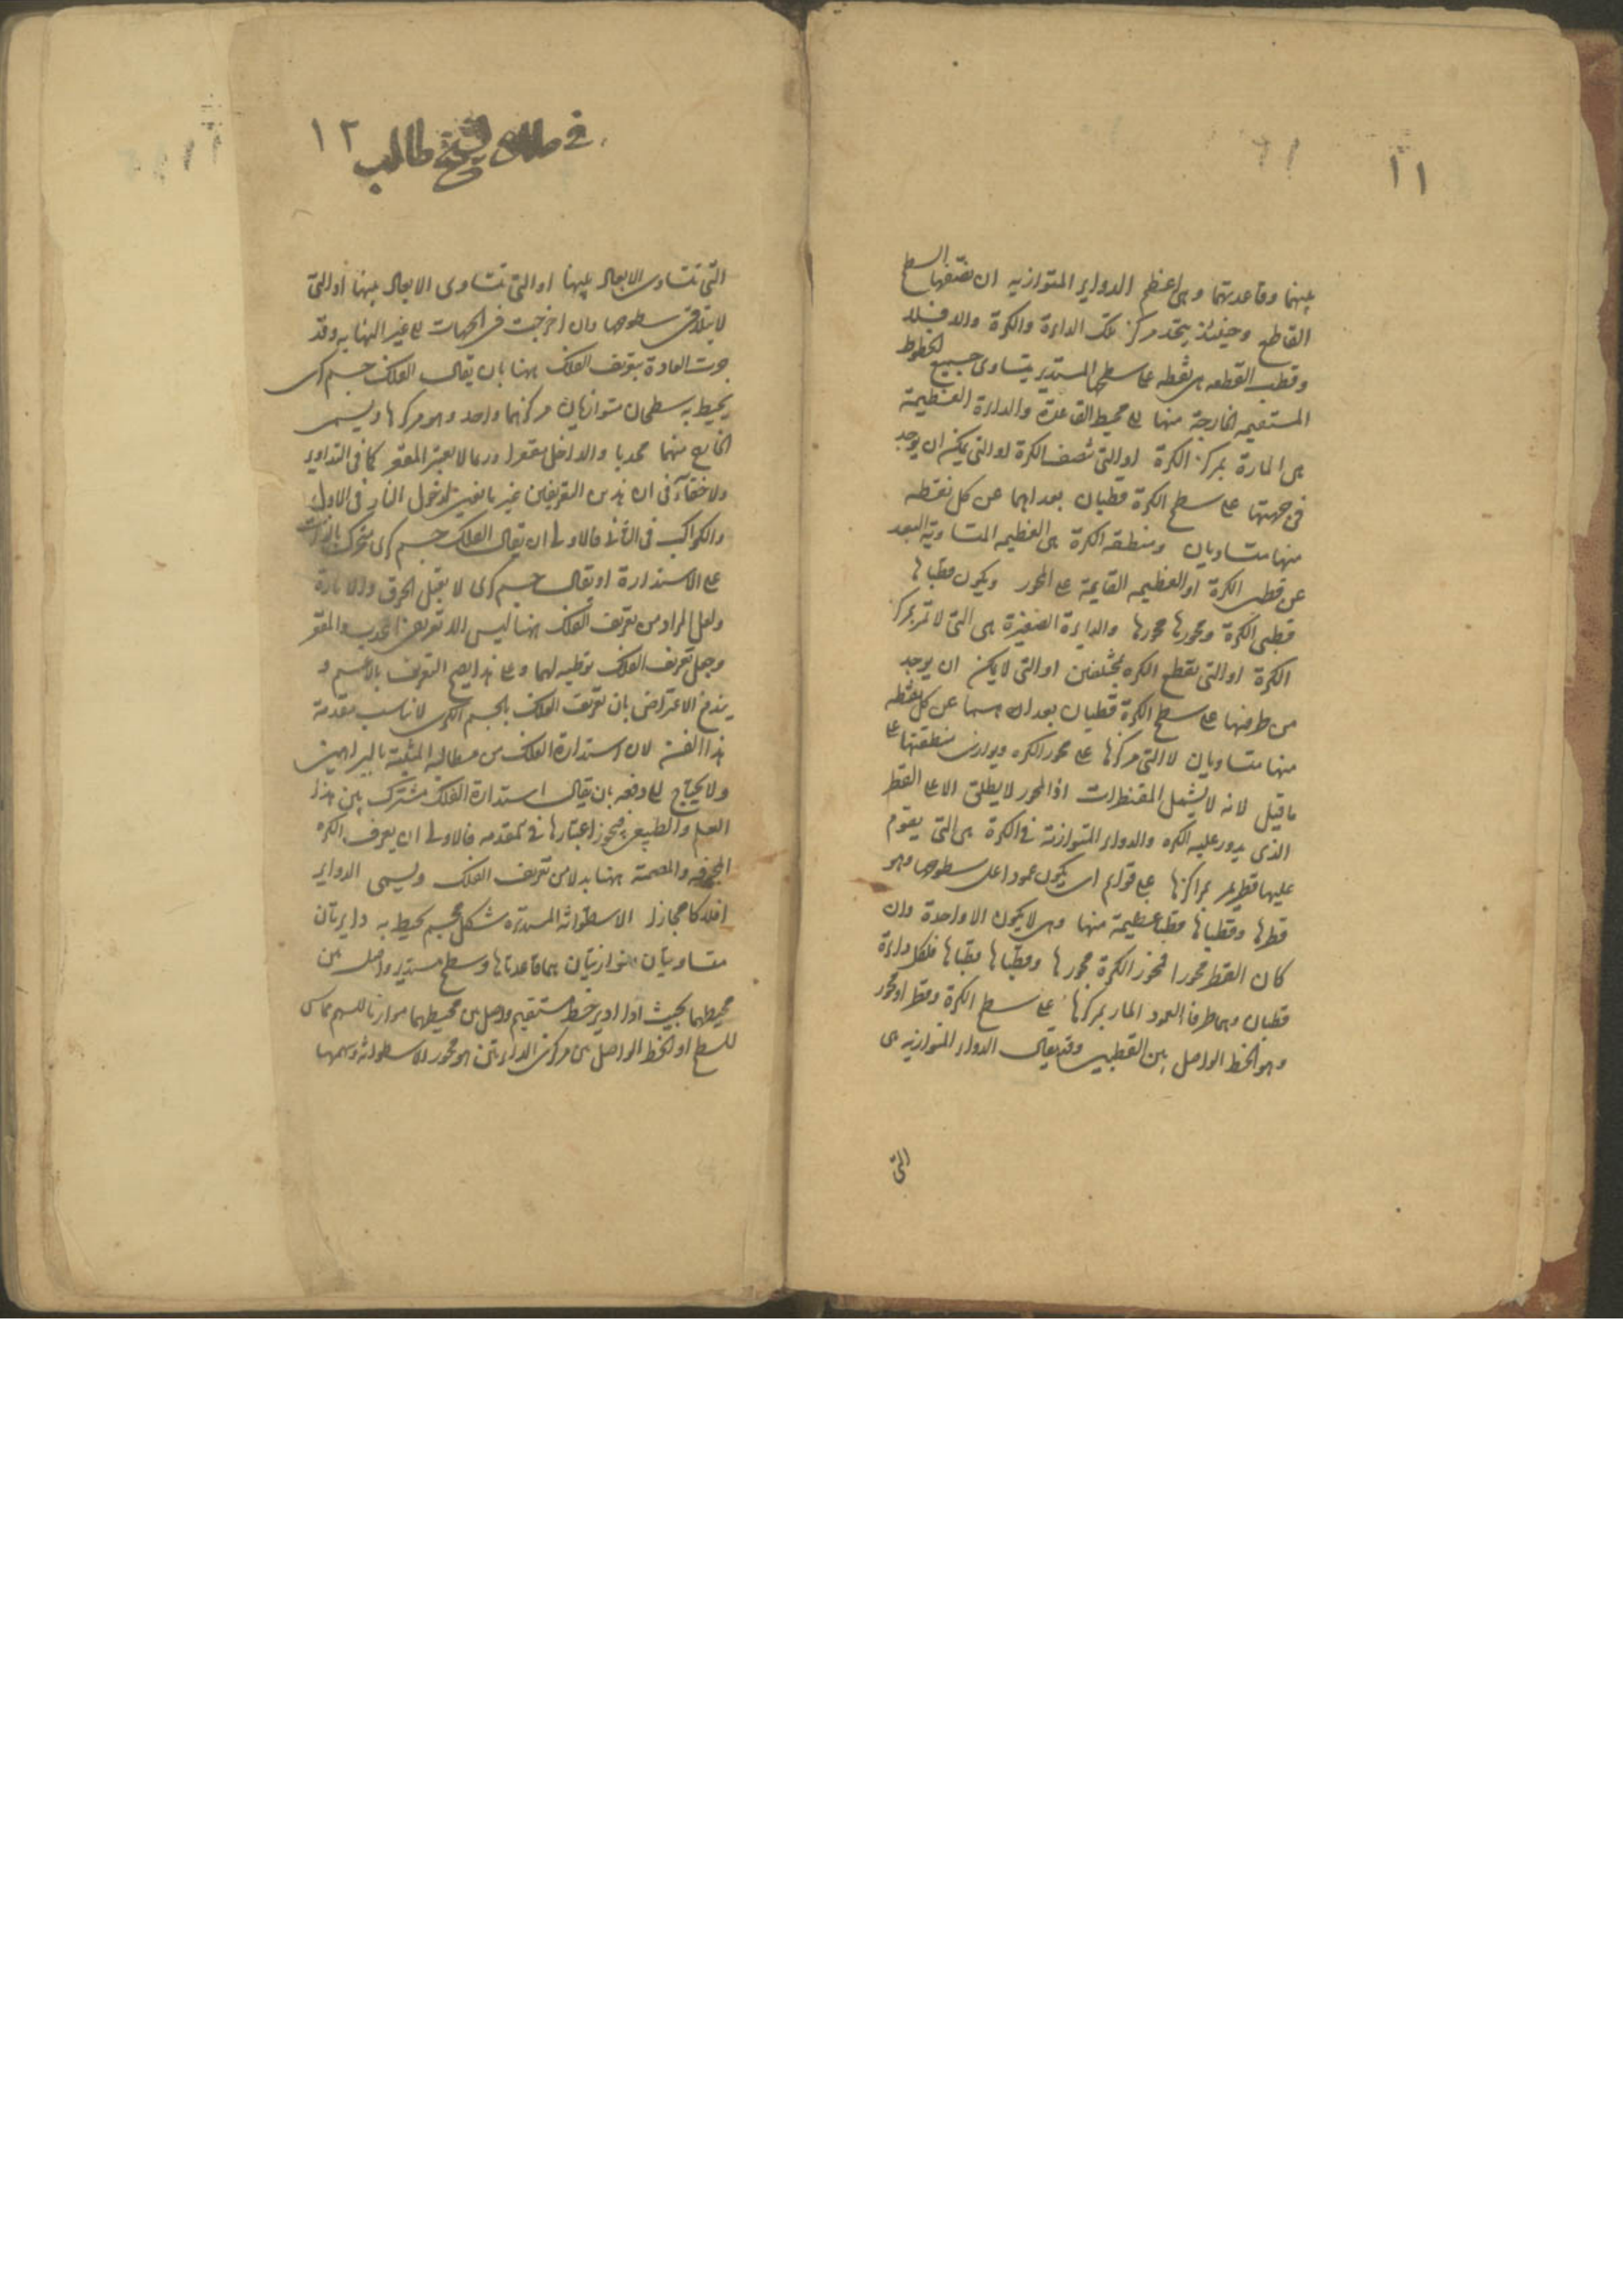 ١١
بينهما وقاعدتهما وهى اعظم الدواير المتوازيه ان نصفها السطح
القاطع وحينئذ يتحد مركز تلك الدائرة والكرة والا فلا
وقطب القطعه هى نقطه على سطحها المستدير يتساوى جميع الخطوط
المستقيمه الخارجة منها الى محيط القاعدة والدائرة العظيمة
هى المارة بمركز الكرة او التى تنصف الكرة او التى يمكن ان يوجد
فى جهتها على سطح الكرة قطبان بعداهما عن كل نقطه
منها متساويان ومنطقه الكرة هى العظيمه المتساوية البعد
عن قطبى الكرة او العظيمه القايمة على المحور ويكون قطباها
قطبى الكرة ومحورها محورها والدايرة الصغيرة هى التى لا تمر بمركز
الكرة او التى تقطع الكره بمختلفين او التى لا يمكن ان يوجد
من طرفيها على سطح الكرة قطبان بعداهما عن كل نقطه
منها متساويان لا التى مركزها على محور الكره ويوازى منطقتها على
ما قيل لانه لا يشمل المقنطرات اذ المحور لا يطلق الا على القطر
الذى يدور عليه الكره والدواير المتوازية فى الكرة هى التى يقوم
عليها قطر يمر بمراكزها على قوايم اى يكون عمودا على سطوحها وهو
قطرها وقطباها قطبا عظيمة منها وهى لا يكون الا واحدة وان
كان القطر محورا فمحور الكرة محورها وقطباها قطباها فلكل دايرة
قطبان وهما طرفا العمود المار بمركزها على سطح الكرة وقطر او محور
وهو الخط الواصل بين القطبين وقد يقال الدواير المتوازيه هى
التى
١٢
فى طالب
التى تتساوى الابعاد بينها او التى تتساوى الابعاد بينها او التى
لا يتلاقى سطوحها وان اخرجت فى الجهات الى غير النهايه وقد
جرت العادة بتعريف الفلك ههنا بان يقال الفلك جسم كرى
يحيط به سطحان متوازيان مركزهما واحد وهو مركزها ويسمى
الخارج منهما محدبا والداخل مقعرا وربما لا يعتبر المقعر كما فى التداوير
ولا خفاء فى ان هذين التعريفين غير مانعين لدخول النار فى الاول
والكواكب فى الثانى فالاولى ان يقال الفلك جسم كرى متحرك بالذات
على الاستدارة او يقال جسم كرى لا يقبل الخرق والانارة
ولعل المراد من تعريف الفلك ههنا ليس الا تعريفى المحدب والمقعر
وجعل تعريف الفلك توطيه لهما وعلى هذا يصح التعريف بالاعم و
يندفع الاعتراض بان تعريف الفلك بالجسم الكرى لا يناسب مقدمة
هذا الفن لان استدارة الفلك من مطالبه المثبتة بالبراهين
ولا يحتاج الى دفعه بان يقال استدارة الفلك مشترك بين هذا
العلم والطبيعى فيجوز اعتبارها فى المقدمه فالاولى ان يعرف الكره
المجوفه والمصمتة ههنا بدلا من تعريف الفلك ويسمى الدواير
افلاكا مجازا الاسطوانه المستديره شكل مجسم يحيط به دايرتان
متساويتان متوازيتان هما قاعدتاها وسطح مستدير واصل بين
محيطهما بحيث اذا ادير خط مستقيم واصل بين محيطهما موازيا للسهم ماس
للسطح او الخط الواصل بين مركزى الدايرتين هو محور الاسطوانه وسهمها